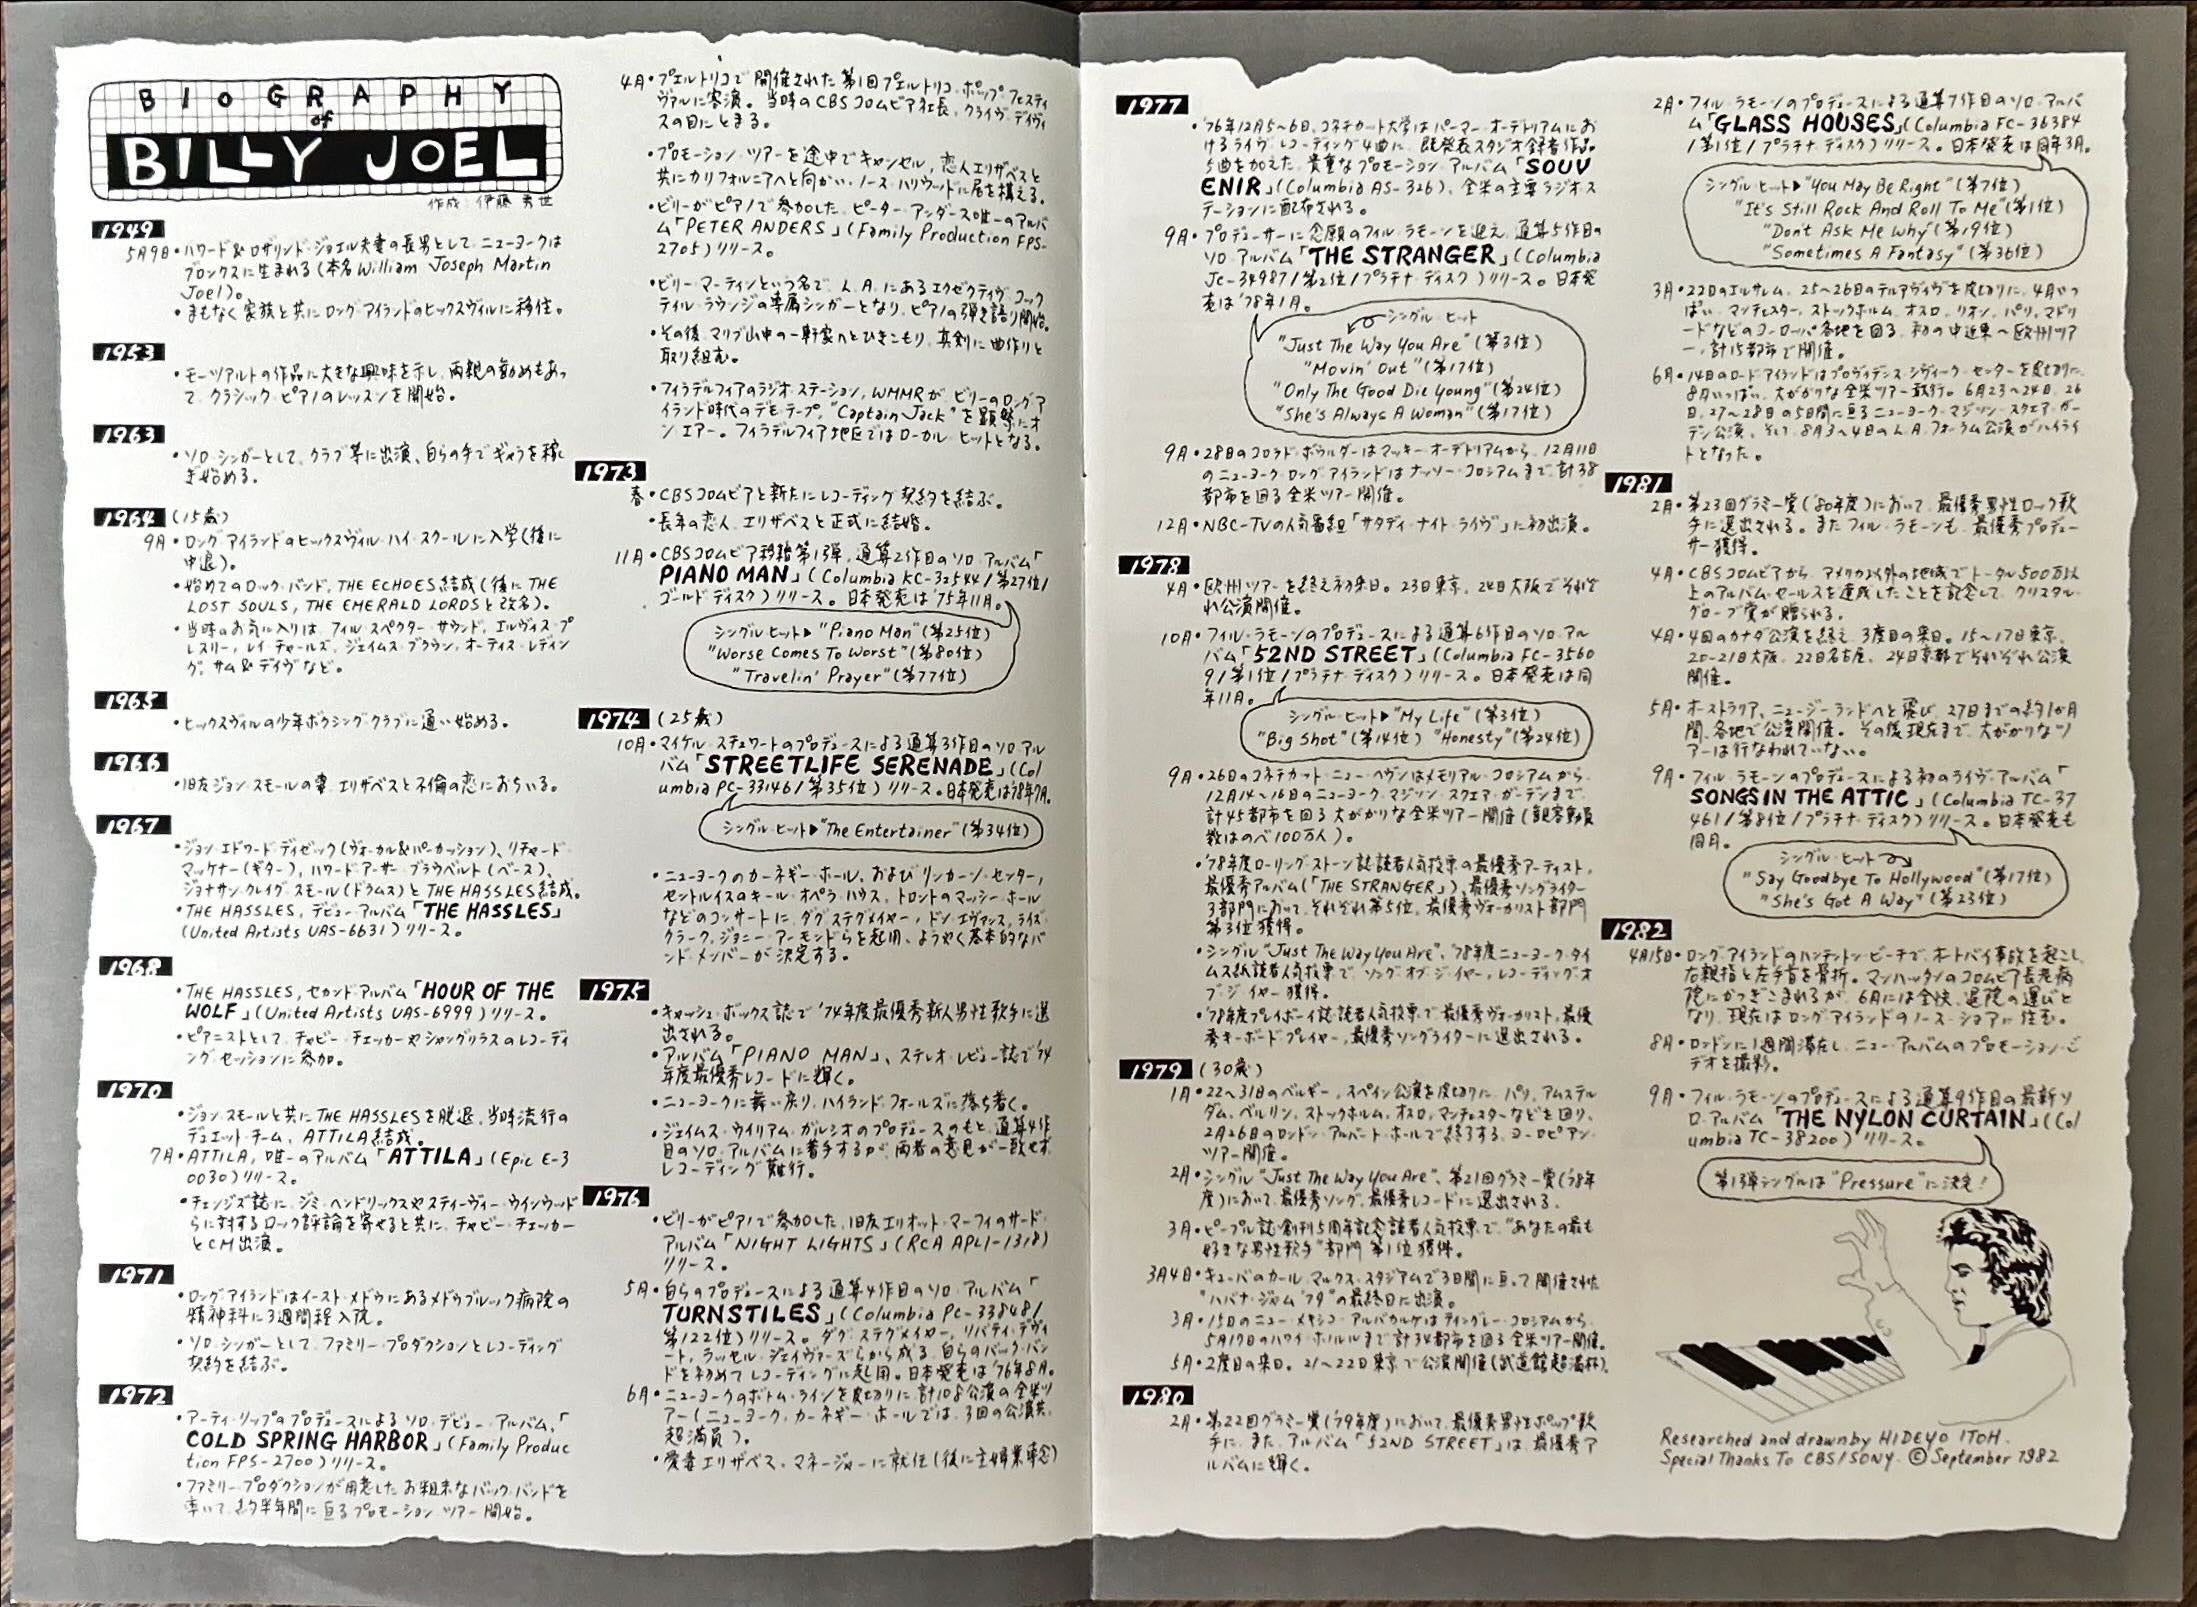 BIOGRAPHY
of
BILLY JOEL
作成: 伊藤秀世
1949
5月9日・ハワード&ロザリンド・ジョエル夫妻の長男として、ニューヨークは
ブロンクスに生まれる(本名William Joseph Martin
Joel)。
・まもなく家族と共にロングアイランドのヒックスヴィルに移住。
1953
・モーツアルトの作品に大きな興味を示し、両親の勧めもあっ
て、クラシック・ピアノのレッスンを開始。
1963
・ソロ・シンガーとして、クラブ等に出演、自らの手でギャラを稼
ぎ始める。
1964 (15歳)
9月・ロングアイランドのヒックスヴィル・ハイ・スクールに入学(後に
中退)。
・始めてのロック・バンド、THE ECHOES結成(後にTHE
LOST SOULS, THE EMERALD LORDSと改名)。
・当時のお気に入りは、フィル・スペクター・サウンド、エルヴィス・プ
レスリー、レイ・チャールズ、ジェイムス・ブラウン、オーティス・レディン
グ、サム&デイヴなど。
1965
・ヒックスヴィルの少年ボクシング・クラブに通い始める。
1966
・旧友ジョン・スモールの妻、エリザベスと不倫の恋におちいる。
1967
・ジョン・エドワード・ディゼック(ヴォーカル&パーカッション)、リチャード・
マッケナー(ギター)、ハワード・アーサー・ブラウベルト(ベース)、
ジョナサン・クレイグ・スモール(ドラムス)とTHE HASSLES結成。
・THE HASSLES, デビュー・アルバム「THE HASSLES」
(United Artists UAS-6631)リリース。
1968
・THE HASSLES, セカンド・アルバム「HOUR OF THE
WOLF」(United Artists UAS-6999)リリース。
・ピアニストとして、チャビー・チェッカーやシャングリラスのレコーディ
ング・セッションに参加。
1970
・ジョン・スモールと共にTHE HASSLESを脱退、当時流行の
デュエット・チーム、ATTILA結成。
7月・ATTILA, 唯一のアルバム「ATTILA」(Epic E-3
0030)リリース。
・チェンジズ誌に、ジミ・ヘンドリックスやスティーヴィー・ウインウッド
らに対するロック評論を寄せると共に、チャビー・チェッカー
とCM出演。
1971
・ロングアイランドはイースト・メドウにあるメドウブルック病院の
精神科に3週間程入院。
・ソロ・シンガーとして、ファミリー・プロダクションとレコーディング
契約を結ぶ。
1972
・アーティ・リップのプロデュースによるソロ・デビュー・アルバム、「
COLD SPRING HARBOR」(Family Produc
tion FPS-2700)リリース。
・ファミリー・プロダクションが用意したお粗末なバック・バンドを
率いて、約半年間に亘るプロモーション・ツアー開始。
4月・プエルトリコで開催された第1回プエルトリコ・ポップ・フェスティ
ヴァルに客演。当時のCBSコロムビア社長、クライヴ・デイヴィ
スの目にとまる。
・プロモーション・ツアーを途中でキャンセル、恋人エリザベスと
共にカリフォルニアへと向かい、ノース・ハリウッドに居を構える。
・ビリーがピアノで参加した、ピーター・アンダース唯一のアルバ
ム「PETER ANDERS」(Family Production FPS-
2705)リリース。
・ビリー・マーティンという名で、L.A.にあるエクゼクティヴ・コック
テイル・ラウンジの専属シンガーとなり、ピアノの弾き語り開始。
・その後、マリブ山中の一軒家へとひきこもり、真剣に曲作りと
取り組む。
・フィラデルフィアのラジオ・ステーション、WMMRが、ビリーのロングア
イランド時代のデモ・テープ、"Captain Jack"を頻繁にオ
ン・エアー。フィラデルフィア地区ではローカル・ヒットとなる。
1973
春・CBSコロムビアと新たにレコーディング契約を結ぶ。
・長年の恋人、エリザベスと正式に結婚。
11月・CBSコロムビア移籍第1弾、通算2作目のソロ・アルバム「
PIANO MAN」(Columbia KC-32544/第27位/
ゴールド・ディスク)リリース。日本発売は'75年11月。
シングル・ヒット▶"Piano Man"(第25位)
"Worse Comes To Worst"(第80位)
"Travelin' Prayer"(第77位)
1974 (25歳)
10月・マイケル・スチュワートのプロデュースによる通算3作目のソロ・アル
バム「STREETLIFE SERENADE」(Col
umbia PC-33146/第35位)リリース。日本発売は'78年7月。
シングル・ヒット▶"The Entertainer"(第34位)
・ニューヨークのカーネギー・ホール、およびリンカーン・センター、
セントルイスのキール・オペラ・ハウス、トロントのマッシー・ホール
などのコンサートに、ダグ・ステグメイヤー、ドン・エヴァンス、ライズ・
クラーク、ジョニー・アーモンドらを起用、ようやく基本的なバ
ンド・メンバーが決定する。
1975
・キャッシュ・ボックス誌で'74年度最優秀新人男性歌手に選
出される。
・アルバム「PIANO MAN」、ステレオ・レビュー誌で'74
年度最優秀レコードに輝く。
・ニューヨークに舞い戻り、ハイランド・フォールズに落ち着く。
・ジェイムス・ウイリアム・ガルシオのプロデュースのもと、通算4作
目のソロ・アルバムに着手するが、両者の意見が一致せず、
レコーディング難行。
1976
・ビリーがピアノで参加した、旧友エリオット・マーフィのサード・
アルバム「NIGHT LIGHTS」(RCA APL1-1318)
リリース。
5月・自らのプロデュースによる通算4作目のソロ・アルバム「
TURNSTILES」(Columbia PC-33848/
第122位)リリース。ダグ・ステグメイヤー、リバティ・デヴィ
ート、ラッセル・ジェイヴァーズらから成る、自らのバック・バン
ドを初めてレコーディングに起用。日本発売は'76年8月。
6月・ニューヨークのボトム・ラインを皮切りに、計108公演の全米ツ
アー(ニューヨーク、カーネギー・ホールでは、3回の公演共、
超満員)。
・愛妻エリザベス、マネージャーに就任(後に主婦業専念)
1977
・'76年12月5~6日、コネチカット大学はパーマー・オーデトリアムにお
けるライヴ・レコーディング4曲に、既発表スタジオ録音作品
5曲を加えた、貴重なプロモーション・アルバム「SOUV
ENIR」(Columbia AS-326)、全米の主要ラジオ・ス
テーションに配布される。
9月・プロデューサーに念願のフィル・ラモーンを迎え、通算5作目の
ソロ・アルバム「THE STRANGER」(Columbia
JC-34987/第2位/プラチナ・ディスク)リリース。日本発
売は'78年1月。
シングル・ヒット
"Just The Way You Are"(第3位)
"Movin' Out"(第17位)
"Only The Good Die Young"(第24位)
"She's Always A Woman"(第17位)
9月・28日のコロラド・ボウルダーはマッキー・オーデトリアムから、12月11日
のニューヨーク・ロングアイランドはナッソー・コロシアムまで、計38
都市を回る全米ツアー開催。
12月・NBC-TVの人気番組「サタデイ・ナイト・ライヴ」に初出演。
1978
4月・欧州ツアーを終え初来日。23日東京、24日大阪でそれぞ
れ公演開催。
10月・フィル・ラモーンのプロデュースによる通算6作目のソロ・アル
バム「52ND STREET」(Columbia FC-3560
9/第1位/プラチナ・ディスク)リリース。日本発売は同
年11月。
シングル・ヒット▶"My Life"(第3位)
"Big Shot"(第14位) "Honesty"(第24位)
9月・26日のコネチカット・ニュー・ヘヴンはメモリアル・コロシアムから、
12月14~16日のニューヨーク、マジソン・スクエア・ガーデンまで、
計45都市を回る大がかりな全米ツアー開催(観客動員
数はのべ100万人)。
・'78年度ローリング・ストーン誌読者人気投票の最優秀アーティスト、
最優秀アルバム(「THE STRANGER」)、最優秀ソングライター
3部門において、それぞれ第5位、最優秀ヴォーカリスト部門
第3位獲得。
・シングル"Just The Way You Are"、'78年度ニューヨーク・タイ
ムス紙読者人気投票で、ソング・オブ・ジ・イヤー、レコーディング・オ
ブ・ジ・イヤー獲得。
・'78年度プレイボーイ誌読者人気投票で最優秀ヴォーカリスト、最優
秀キーボード・プレイヤー、最優秀ソングライターに選出される。
1979 (30歳)
1月・22~31日のベルギー、スペイン公演を皮切りに、パリ、アムステル
ダム、ベルリン、ストックホルム、オスロ、マンチェスターなどを回り、
2月26日のロンドン・アルバート・ホールで終了する、ヨーロピアン・
ツアー開催。
2月・シングル"Just The Way You Are"、第21回グラミー賞('78年
度)において、最優秀ソング、最優秀レコードに選出される。
3月・ピープル誌創刊5周年記念読者人気投票で、"あなたの最も
好きな男性歌手"部門 第1位獲得。
3月4日・キューバのカール・マルクス・スタジアムで3日間に亘って開催された
"ハバナ・ジャム'79"の最終日に出演。
3月・15日のニュー・メキシコ・アルバカルケはティングレー・コロシアムから、
5月17日のハワイ・ホノルルまで計34都市を回る全米ツアー開催。
5月・2度目の来日。21~22日東京で公演開催(武道館超満杯)。
1980
2月・第22回グラミー賞('79年度)において、最優秀男性ポップ歌
手に、また、アルバム「52ND STREET」は、最優秀ア
ルバムに輝く。
2月・フィル・ラモーンのプロデュースによる通算7作目のソロ・アルバ
ム「GLASS HOUSES」(Columbia FC-36384
/第1位/プラチナ・ディスク)リリース。日本発売は同年3月。
シングル・ヒット▶"You May Be Right"(第7位)
"It's Still Rock And Roll To Me"(第1位)
"Don't Ask Me Why"(第19位)
"Sometimes A Fantasy"(第36位)
3月・22日のエルサレム、25~26日のテルアヴィヴを皮切りに、4月いっ
ぱい、マンチェスター、ストックホルム、オスロ、リオン、パリ、マドリ
ードなどのヨーロッパ各地を回る、初の中近東~欧州ツア
ー、計15都市で開催。
6月・14日のロードアイランドはプロヴィデンス・シヴィーク・センターを皮切りに、
8月いっぱい、大がかりな全米ツアー敢行。6月23~24日、26
日、27~28日の5日間に亘るニューヨーク・マジソン・スクエア・ガー
デン公演、そして、8月3~4日のL.A.フォーラム公演がハイライ
トとなった。
1981
2月・第23回グラミー賞('80年度)において、最優秀男性ロック歌
手に選出される。また、フィル・ラモーンも、最優秀プロデュー
サー獲得。
4月・CBSコロムビアから、アメリカ以外の地域でトータル500万以
上のアルバム・セールスを達成したことを記念して、クリスタル・
グローブ賞が贈られる。
4月・4回のカナダ公演を終え、3度目の来日。15~17日東京、
20-21日大阪、22日名古屋、24日京都でそれぞれ公演
開催。
5月・オーストラリア、ニュージーランドへと飛び、27日までの約1か月
間、各地で公演開催。その後、現在まで、大がかりなツ
アーは行なわれていない。
9月・フィル・ラモーンのプロデュースによる初のライヴ・アルバム「
SONGS IN THE ATTIC」(Columbia TC-37
461/第8位/プラチナ・ディスク)リリース。日本発売も
同月。
シングル・ヒット
"Say Goodbye To Hollywood"(第17位)
"She's Got A Way"(第23位)
1982
4月15日・ロングアイランドのハンテントン・ビーチで、オートバイ事故を起こし、
右親指と左手首を骨折。マンハッタンのコロムビア長老病
院にかつぎこまれるが、6月には全快、退院の運びと
なり、現在はロングアイランドのノース・ショアに住む。
8月・ロンドンに1週間滞在し、ニュー・アルバムのプロモーション・ビ
デオを撮影。
9月・フィル・ラモーンのプロデュースによる通算9作目の最新ソ
ロ・アルバム「THE NYLON CURTAIN」(Col
umbia TC-38200)リリース。
第1弾シングルは"Pressure"に決定!
Researched and drawn by HIDEYO ITOH.
Special Thanks To CBS/SONY. ©September 1982